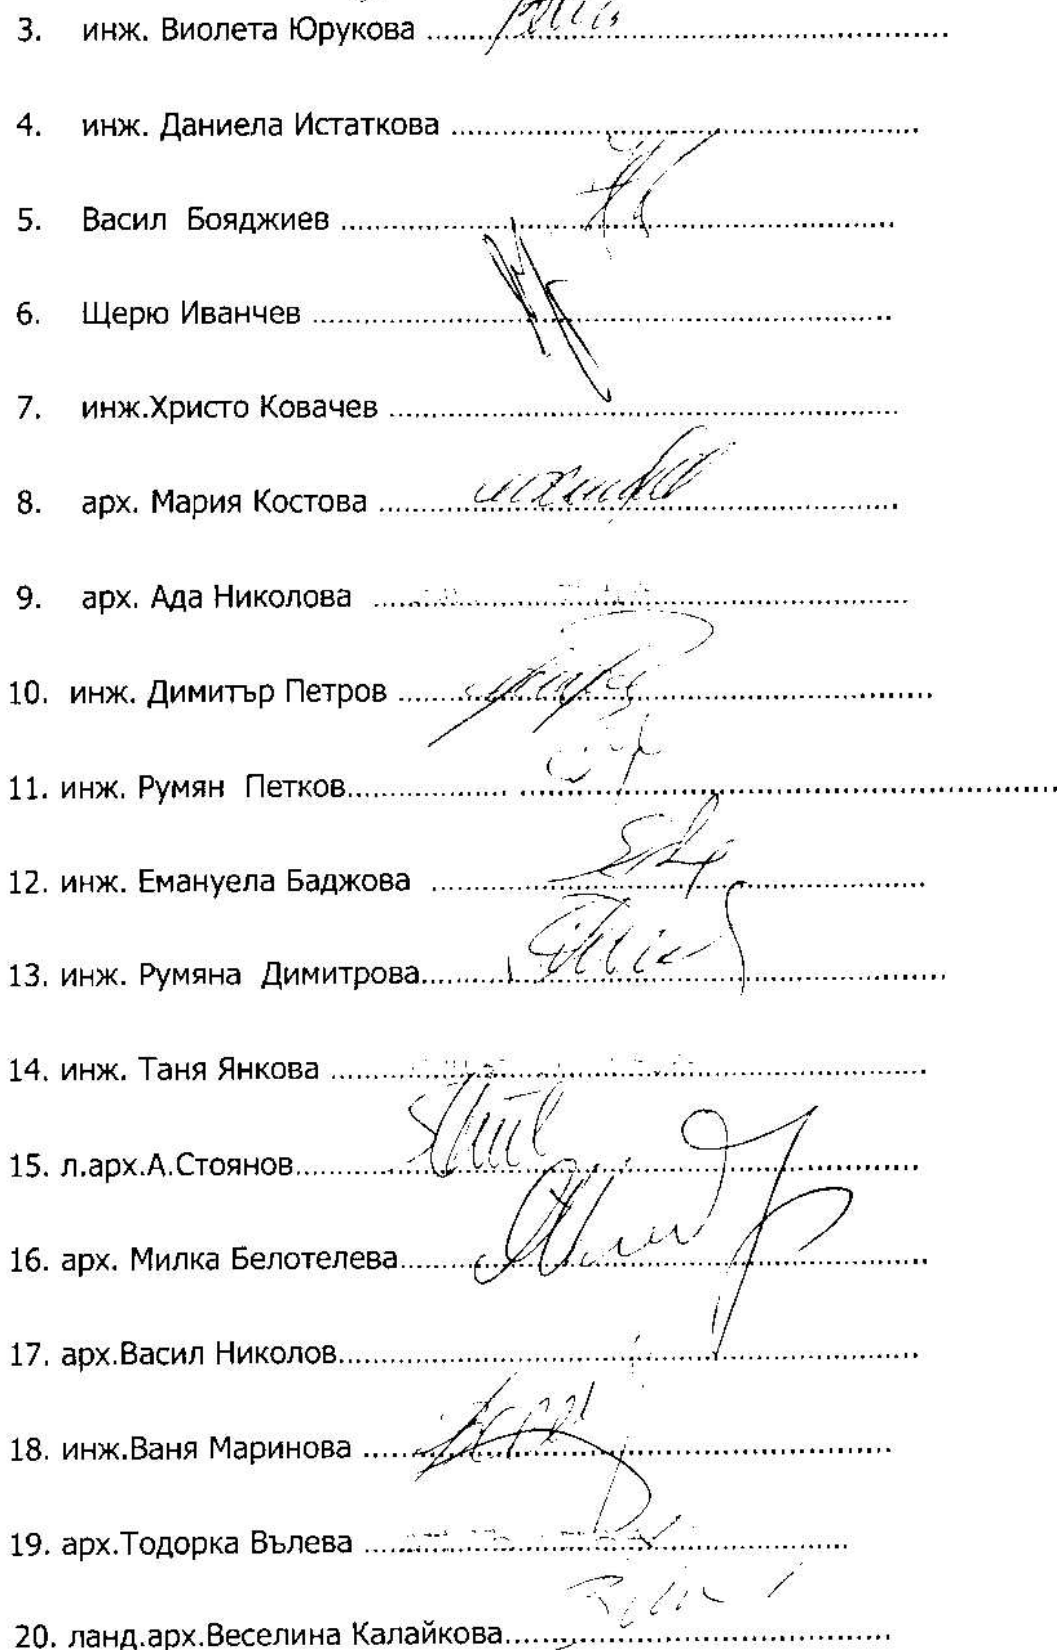 3. инж. Виолета Юрукова ........................................
4. инж. Даниела Истаткова ........................................
5. Васил Бояджиев ........................................
6. Щерю Иванчев ........................................
7. инж.Христо Ковачев ........................................
8. арх. Мария Костова ........................................
9. арх. Ада Николова ........................................
10. инж. Димитър Петров ........................................
11. инж. Румян Петков........................................
12. инж. Емануела Баджова ........................................
13. инж. Румяна Димитрова........................................
14. инж. Таня Янкова ........................................
15. л.арх.А.Стоянов........................................
16. арх. Милка Белотелева........................................
17. арх.Васил Николов........................................
18. инж.Ваня Маринова ........................................
19. арх.Тодорка Вълева ........................................
20. ланд.арх.Веселина Калайкова........................................